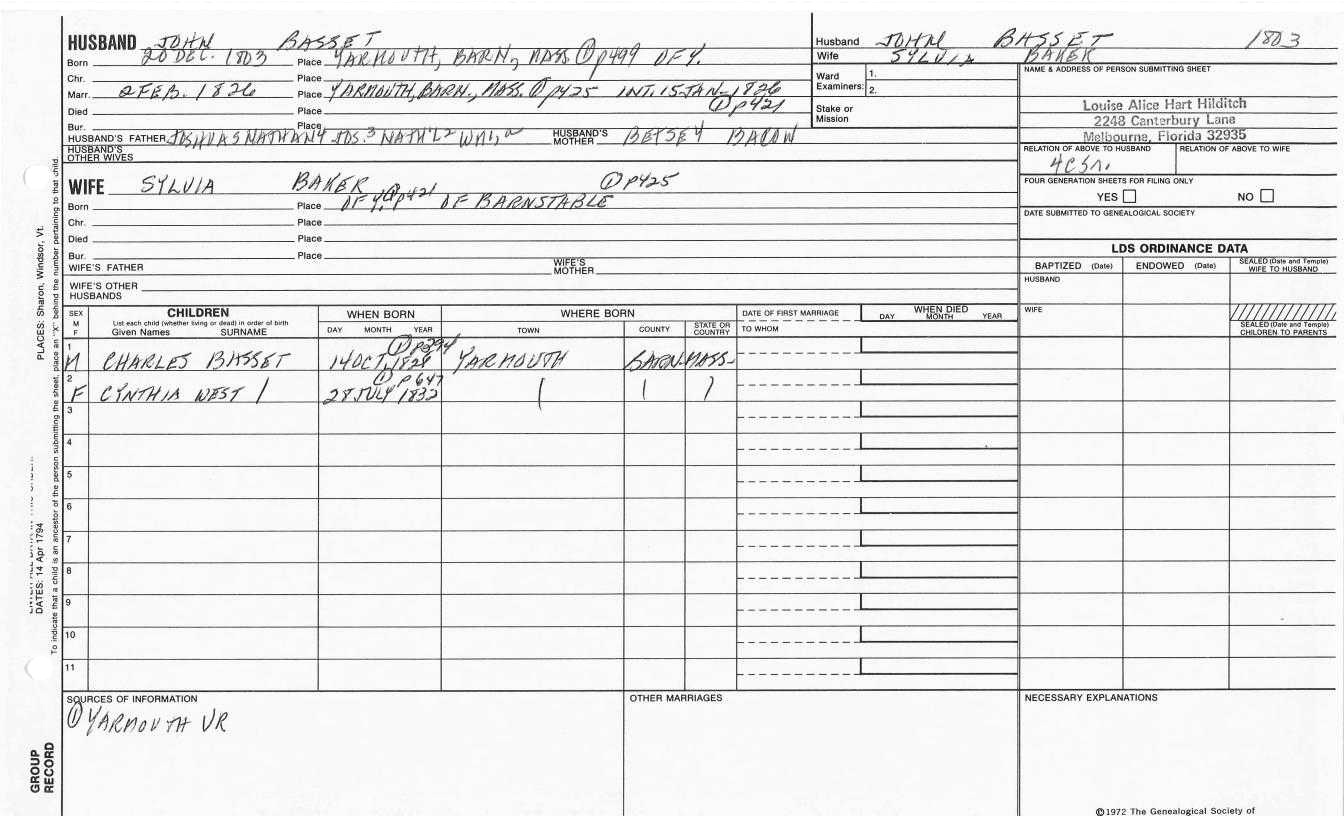 HUSBAND JOHN BASSET
Born 20 DEC. 1803 Place YARMOUTH, BARN, MASS ① p499 OF Y.
Chr. Place
Marr. 2 FEB. 1826 Place YARMOUTH, BARN., MASS. ① p425 INT. 15 JAN. 1826
① p421
Died Place
Bur. Place
HUSBAND'S FATHER JOSHUA5 NATHAN4 JOS.3 NATH'L2 WM1, HUSBAND'S MOTHER BETSEY BACON
HUSBAND'S OTHER WIVES
WIFE SYLVIA BAKER ① P425
Born Place OF Y. ① p421 OF BARNSTABLE
Chr. Place
Died Place
Bur. Place
WIFE'S FATHER WIFE'S MOTHER
WIFE'S OTHER HUSBANDS
Husband JOHN BASSET 1803
Wife SYLVIA BAKER
Ward Examiners: 1.
2.
Stake or Mission
NAME & ADDRESS OF PERSON SUBMITTING SHEET
Louise Alice Hart Hilditch
2248 Canterbury Lane
Melbourne, Florida 32935
RELATION OF ABOVE TO HUSBAND RELATION OF ABOVE TO WIFE
4C5r.
FOUR GENERATION SHEETS FOR FILING ONLY
YES NO
DATE SUBMITTED TO GENEALOGICAL SOCIETY
LDS ORDINANCE DATA
BAPTIZED (Date) ENDOWED (Date) SEALED (Date and Temple) WIFE TO HUSBAND
HUSBAND
WIFE
SEALED (Date and Temple) CHILDREN TO PARENTS
SEX M F CHILDREN WHEN BORN WHERE BORN DATE OF FIRST MARRIAGE WHEN DIED
List each child (whether living or dead) in order of birth
Given Names SURNAME DAY MONTH YEAR TOWN COUNTY STATE OR COUNTRY TO WHOM DAY MONTH YEAR
1 ① p294
M CHARLES BASSET 14 OCT. 1828 YARMOUTH BARN. MASS.
2 ① P647
F CYNTHIA WEST 28 JULY 1832
3
4
5
6
7
8
9
10
11
SOURCES OF INFORMATION OTHER MARRIAGES NECESSARY EXPLANATIONS
① YARMOUTH VR
©1972 The Genealogical Society of
PLACES: Sharon, Windsor, Vt.
DATES: 14 Apr 1794
To indicate that a child is an ancestor of the person submitting the sheet, place an "X" behind the number pertaining to that child.
GROUP RECORD